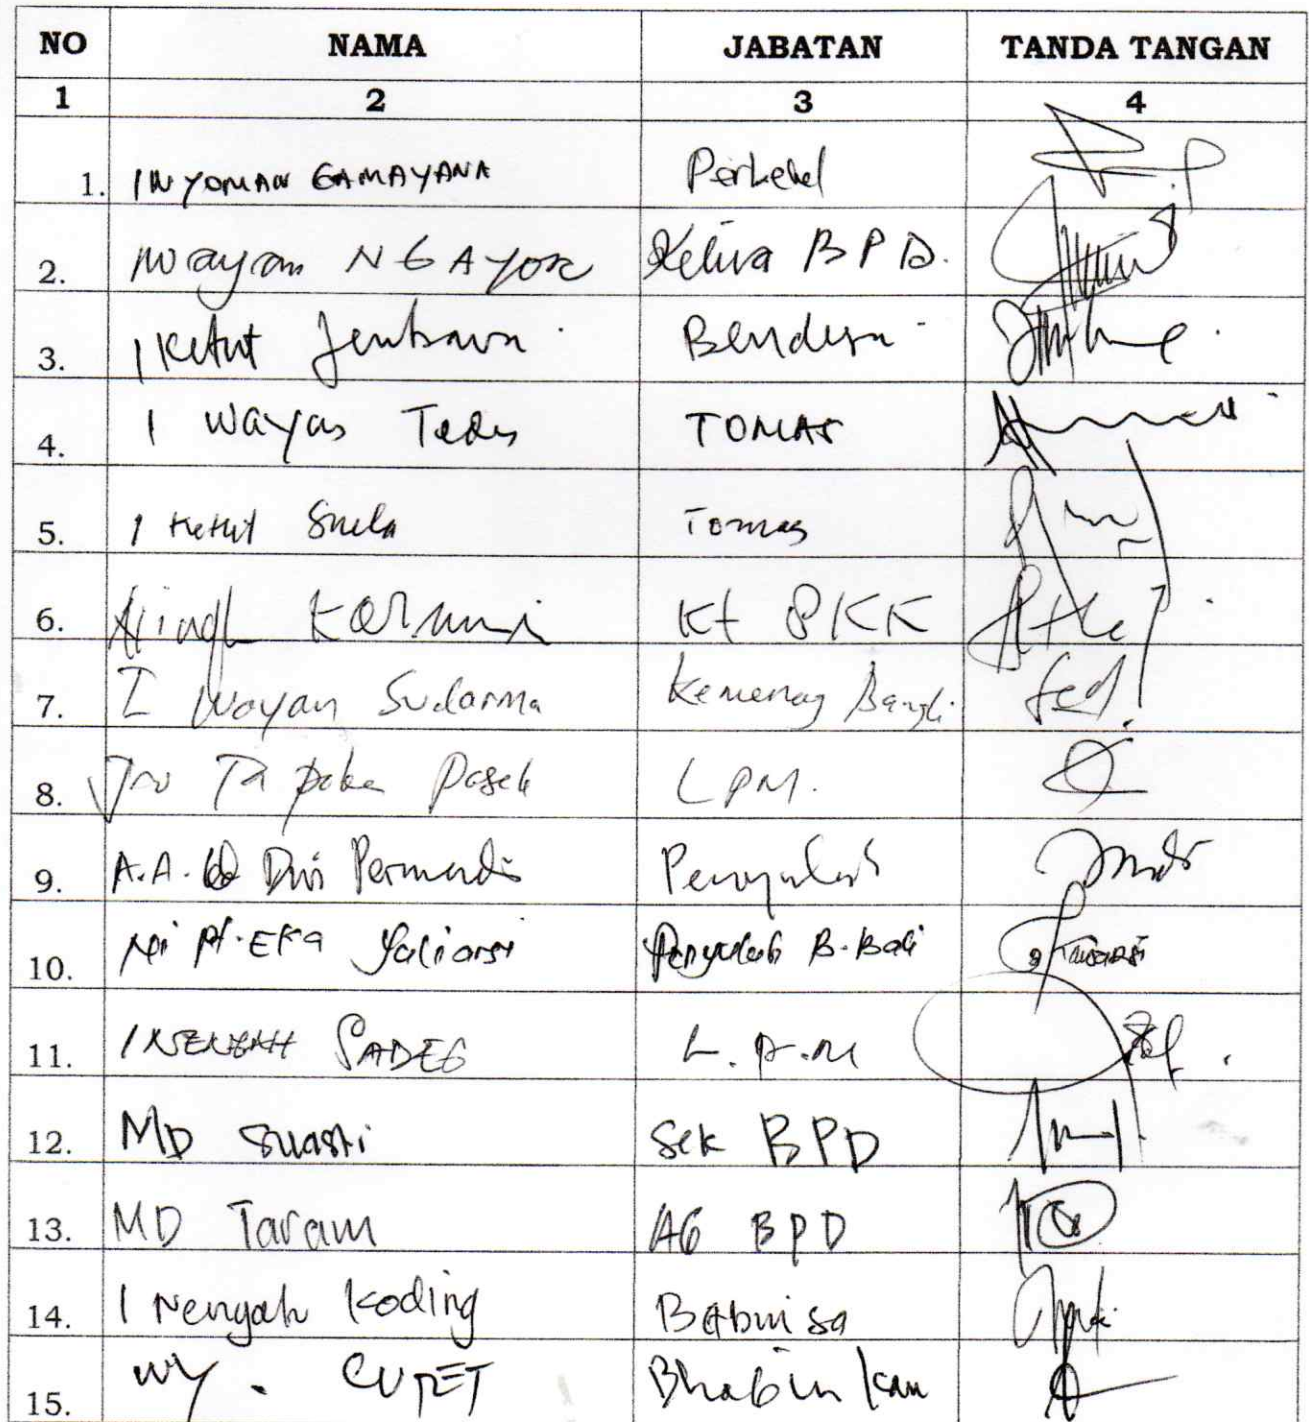 NO NAMA JABATAN TANDA TANGAN
1 2 3 4
1. I NYOMAN GAMAYANA Perbekel
2. Wayan NGAYON Ketua BPD.
3. I Ketut Jenbawa Bendesa
4. I Wayan TOMAS
5. I Ketut Suela Tomas
6. Kt PKK
7. I Wayan Sudarma Kemenag Bangli
8. Pasek LPM.
9. A.A. Dwi Permadi Penyuluh
10. Ni Pt. EKa Yuliarsi Penyuluh B. Bali
11. I NENGAH SADEG L.P.M
12. MD Suasti Sek BPD
13. MD Taram AG BPD
14. I Nengah Koding Babinsa
15. WY. CUPET Bhabinkam